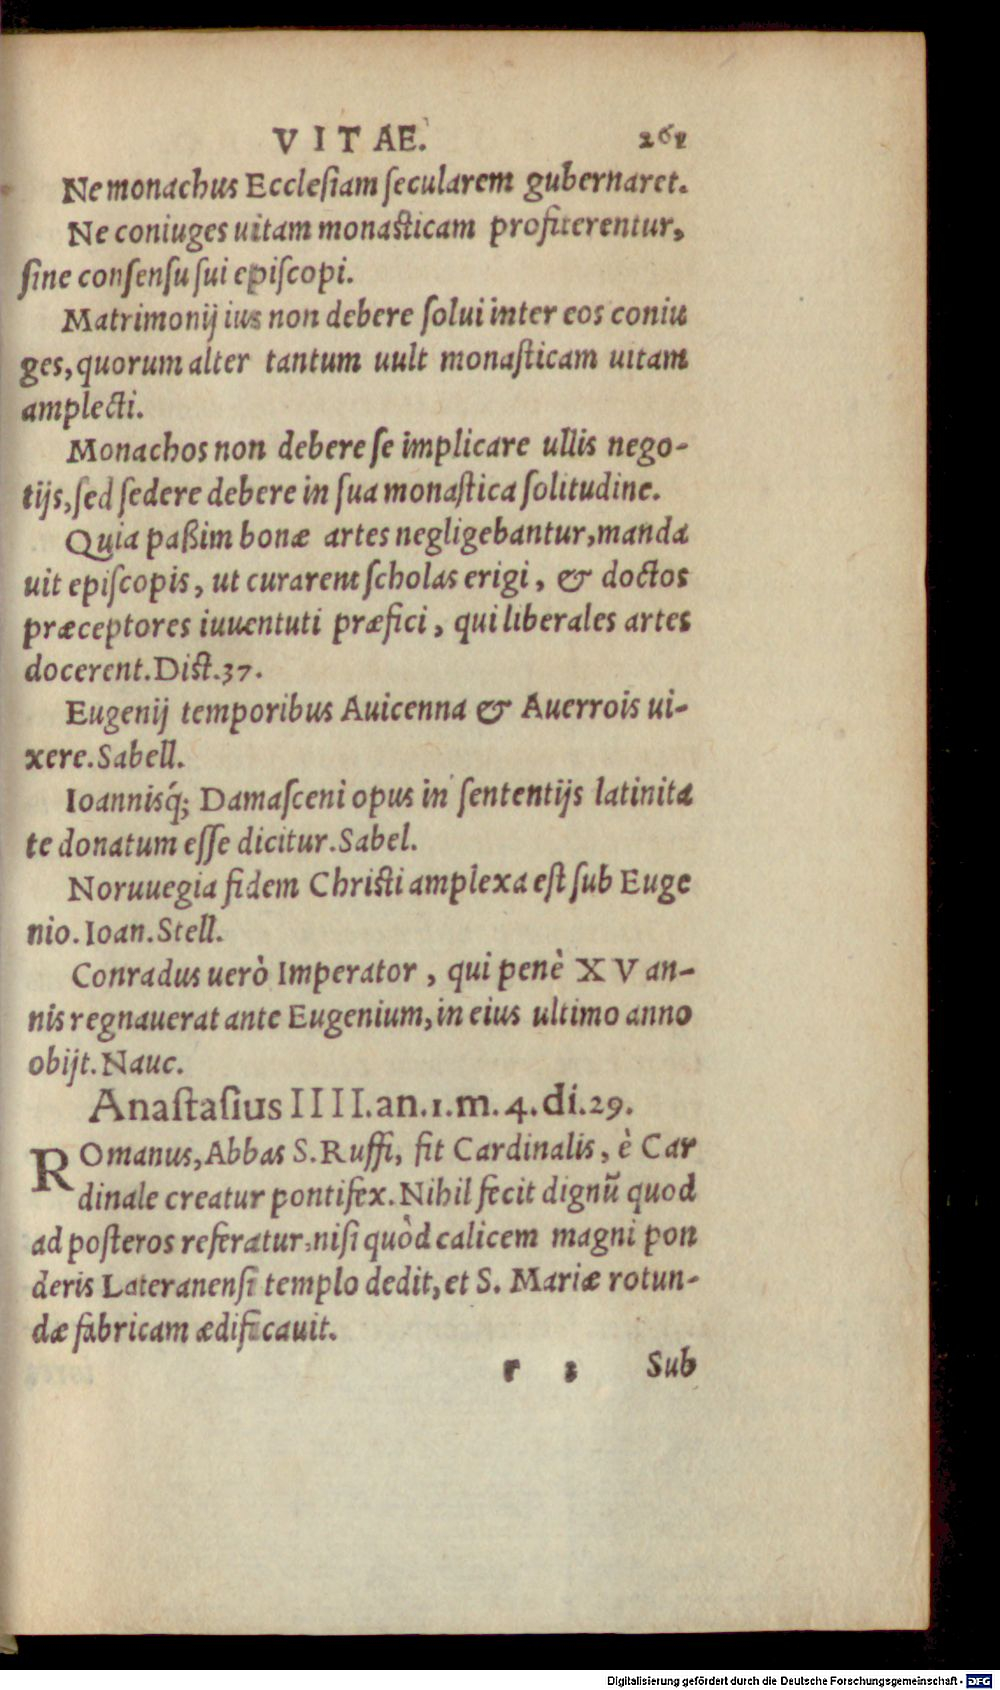 VITAE. 261
Ne monachus Ecclesiam secularem gubernaret.
Ne coniuges uitam monasticam profiterentur,
sine consensu sui episcopi.
Matrimonij ius non debere solui inter eos coniu
ges, quorum alter tantum uult monasticam uitam
amplecti.
Monachos non debere se implicare ullis nego-
tijs, sed sedere debere in sua monastica solitudine.
Quia paßim bonæ artes negligebantur, manda
uit episcopis, ut curarent scholas erigi, & doctos
præceptores iuuentuti præfici, qui liberales artes
docerent. Dist. 37.
Eugenij temporibus Auicenna & Auerrois ui-
xere. Sabell.
Ioannisq́; Damasceni opus in sententijs latinita
te donatum esse dicitur. Sabel.
Noruuegia fidem Christi amplexa est sub Euge
nio. Ioan. Stell.
Conradus uerò Imperator, qui penè XV an-
nis regnauerat ante Eugenium, in eius ultimo anno
obijt. Nauc.
Anastasius IIII. an. 1. m. 4. di. 29.
ROmanus, Abbas S. Ruffi, fit Cardinalis, è Car
dinale creatur pontifex. Nihil fecit dignũ quod
ad posteros referatur, nisi quòd calicem magni pon
deris Lateranensi templo dedit, et S. Mariæ rotun-
dæ fabricam ædificauit.
r 3 Sub
Digitalisierung gefördert durch die Deutsche Forschungsgemeinschaft - DFG